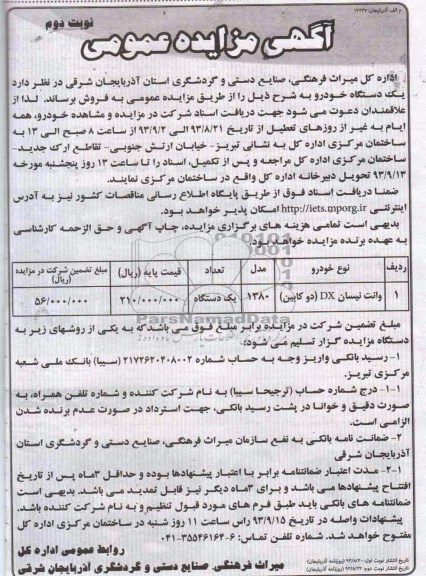 م الف آذربایجان: ۱۲۲۳۷
نوبت دوم
آگهی مزایده عمومی
اداره کل میراث فرهنگی، صنایع دستی و گردشگری استان آذربایجان شرقی در نظر دارد
یک دستگاه خودرو به شرح ذیل را از طریق مزایده عمومی به فروش برساند. لذا از
علاقمندان دعوت می شود جهت دریافت اسناد شرکت در مزایده و مشاهده خودرو، همه
ایام به غیر از روزهای تعطیل از تاریخ ۹۳/۸/۲۱ الی ۹۳/۹/۲ از ساعت ۸ صبح الی ۱۳ به
ساختمان مرکزی اداره کل به نشانی تبریز- خیابان ارتش جنوبی- تقاطع ارک جدید-
ساختمان مرکزی اداره کل مراجعه و پس از تکمیل، اسناد را تا ساعت ۱۳ روز پنجشنبه مورخه
۹۳/۹/۱۳ تحویل دبیرخانه اداره کل واقع در ساختمان مرکزی نمایند.
ضمنا دریافت اسناد فوق از طریق پایگاه اطلاع رسانی مناقصات کشور نیز به آدرس
اینترنتی http://iets.mporg.ir امکان پذیر خواهد بود.
بدیهی است تمامی هزینه های برگزاری مزایده، چاپ آگهی و حق الزحمه کارشناسی
به عهده برنده مزایده خواهد بود.
ردیف نوع خودرو مدل تعداد قیمت پایه (ریال) مبلغ تضمین شرکت در مزایده (ریال)
۱ وانت نیسان DX (دو کابین) ۱۳۸۰ یک دستگاه ۲۱۰/۰۰۰/۰۰۰ ۵۶/۰۰۰/۰۰۰
ParsNamadData
مبلغ تضمین شرکت در مزایده برابر مبلغ فوق می باشد که به یکی از روشهای زیر به
دستگاه مزایده گزار تسلیم می شود:
۱- رسید بانکی واریز وجه به حساب شماره ۲۱۷۲۶۲۰۴۰۸۰۰۲ (سیبا) بانک ملی شعبه
مرکزی تبریز.
۱-۱- درج شماره حساب (ترجیحا سیبا) به نام شرکت کننده و شماره تلفن همراه، به
صورت دقیق و خوانا در پشت رسید بانکی، جهت استرداد در صورت عدم برنده شدن
الزامی است.
۲- ضمانت نامه بانکی به نفع سازمان میراث فرهنگی، صنایع دستی و گردشگری استان
آذربایجان شرقی
۲-۱- مدت اعتبار ضمانتنامه برابر با اعتبار پیشنهادها بوده و حداقل ۳ماه پس از تاریخ
افتتاح پیشنهادها می باشد و برای ۳ماه دیگر نیز قابل تمدید می باشد. بدیهی است
ضمانتنامه های بانکی باید طبق فرم های مورد قبول تنظیم و به نام شرکت کننده باشد.
پیشنهادات واصله در تاریخ ۹۳/۹/۱۵ راس ساعت ۱۱ روز شنبه در ساختمان مرکزی اداره کل
مفتوح خواهد شد. شماره تلفن تماس: ۶-۳۵۵۴۶۱۶۴-۰۴۱
روابط عمومی اداره کل
میراث فرهنگی، صنایع دستی و گردشگری آذربایجان شرقی
تاریخ انتشار نوبت اول: ۹۳/۸/۲۰ (روزنامه آذربایجان)
تاریخ انتشار نوبت دوم: ۹۳/۸/۲۲ (روزنامه آذربایجان)